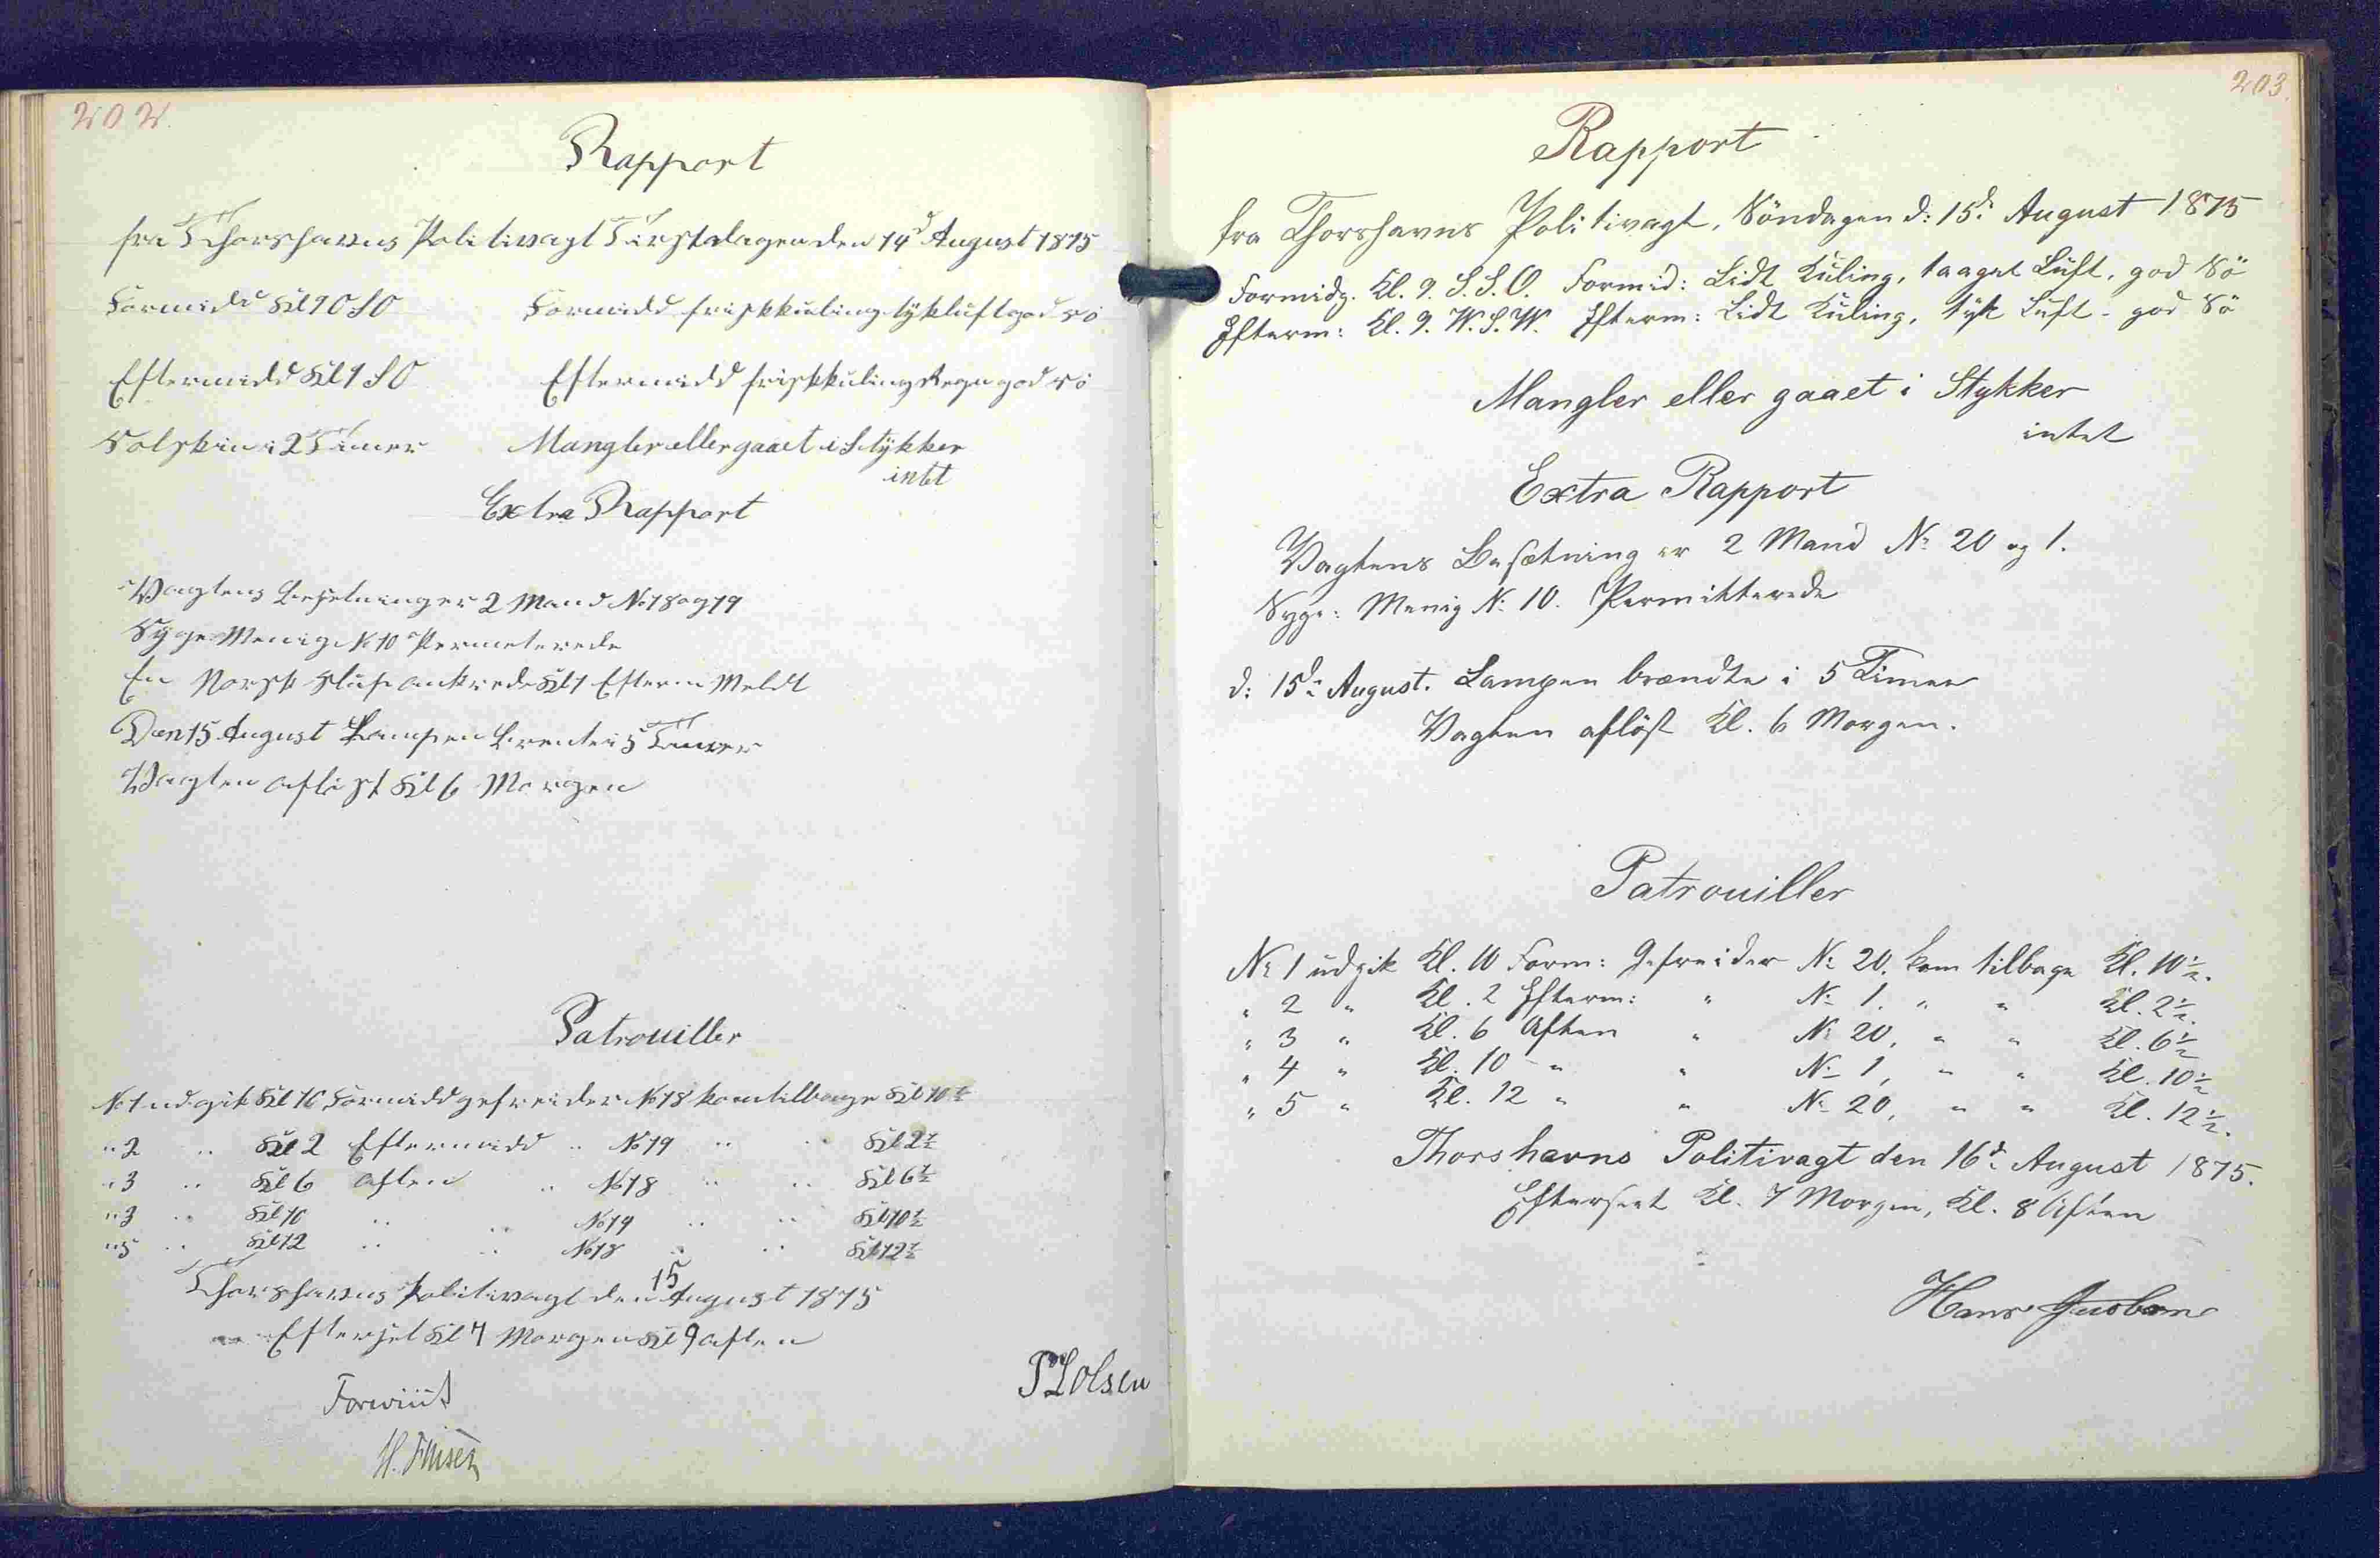 202.
Rapport
fra Thorshavns Politivagt den 14d August 1875
Formidd Kl 10 SO Formidd friskkuling tykluft god sö
Eftermidd Kl 1 SO Eftermidd friskkuling Regn god sö
Solskin i 2 Timer Mangler eller gaaet i Stykker
intet
Extra Rapport
Vagtens Besetning er 2 Mand No 18 og 19
Syge Menig No 10 Permeterede
En Norsk Slup ankrede Kl 1 Efterm Meldt
Den 15 August Lampen Brente i 5 Timer
Vagten aflöst Kl 6 Morgen
Patrouiller
No 1 udgik Kl 10 Formidd gefreider No 18 kom tilbage Kl 10½
" 2 " Kl 2 Eftermidd " No 19 " " Kl 2½
" 3 " Kl 6 Aften " No 18 " " Kl 6½
" 3 " Kl 10 " " No 19 " " Kl 10½
" 5 " Kl 12 " " No 18 " " Kl 12½
Thorshavns Politivagt den 15 August 1875
Efterset Kl 7 Morgen Kl 9 Aften
P L Olsen
Foreviist
203.
Rapport
fra Thorshavns Politivagt, Söndagen d: 15de August 1875
Formidg. Kl. 9. S.S.O. Formid: Lidt Kuling, taaget Luft, god Sö
Efterm: Kl. 9. W.S.W. Efterm: Lidt Kuling, tyk Luft - god Sö
Mangler eller gaaet i Stykker
intet
Extra Rapport
Vagtens Besætning er 2 Mand No 20 og 1.
Syge: Menig No 10. Permitterede
d: 15de August. Lampen brændte i 5 Timer
Vagten aflöst Kl. 6 Morgen.
Patrouiller
No 1 udgik Kl. 10 Form: Gefreider No 20. kom tilbage Kl. 10½.
" 2 " Kl. 2 Efterm: " No 1. " " Kl. 2½.
" 3 " Kl. 6 Aften " No 20, " " Kl. 6½
" 4 " Kl. 10 " " No 1, " " Kl. 10½
" 5 " Kl. 12 " " No 20, " " Kl. 12½.
Thorshavns Politivagt den 16de August 1875.
Efterseet Kl. 7 Morgen, Kl. 8 Aften
Hans